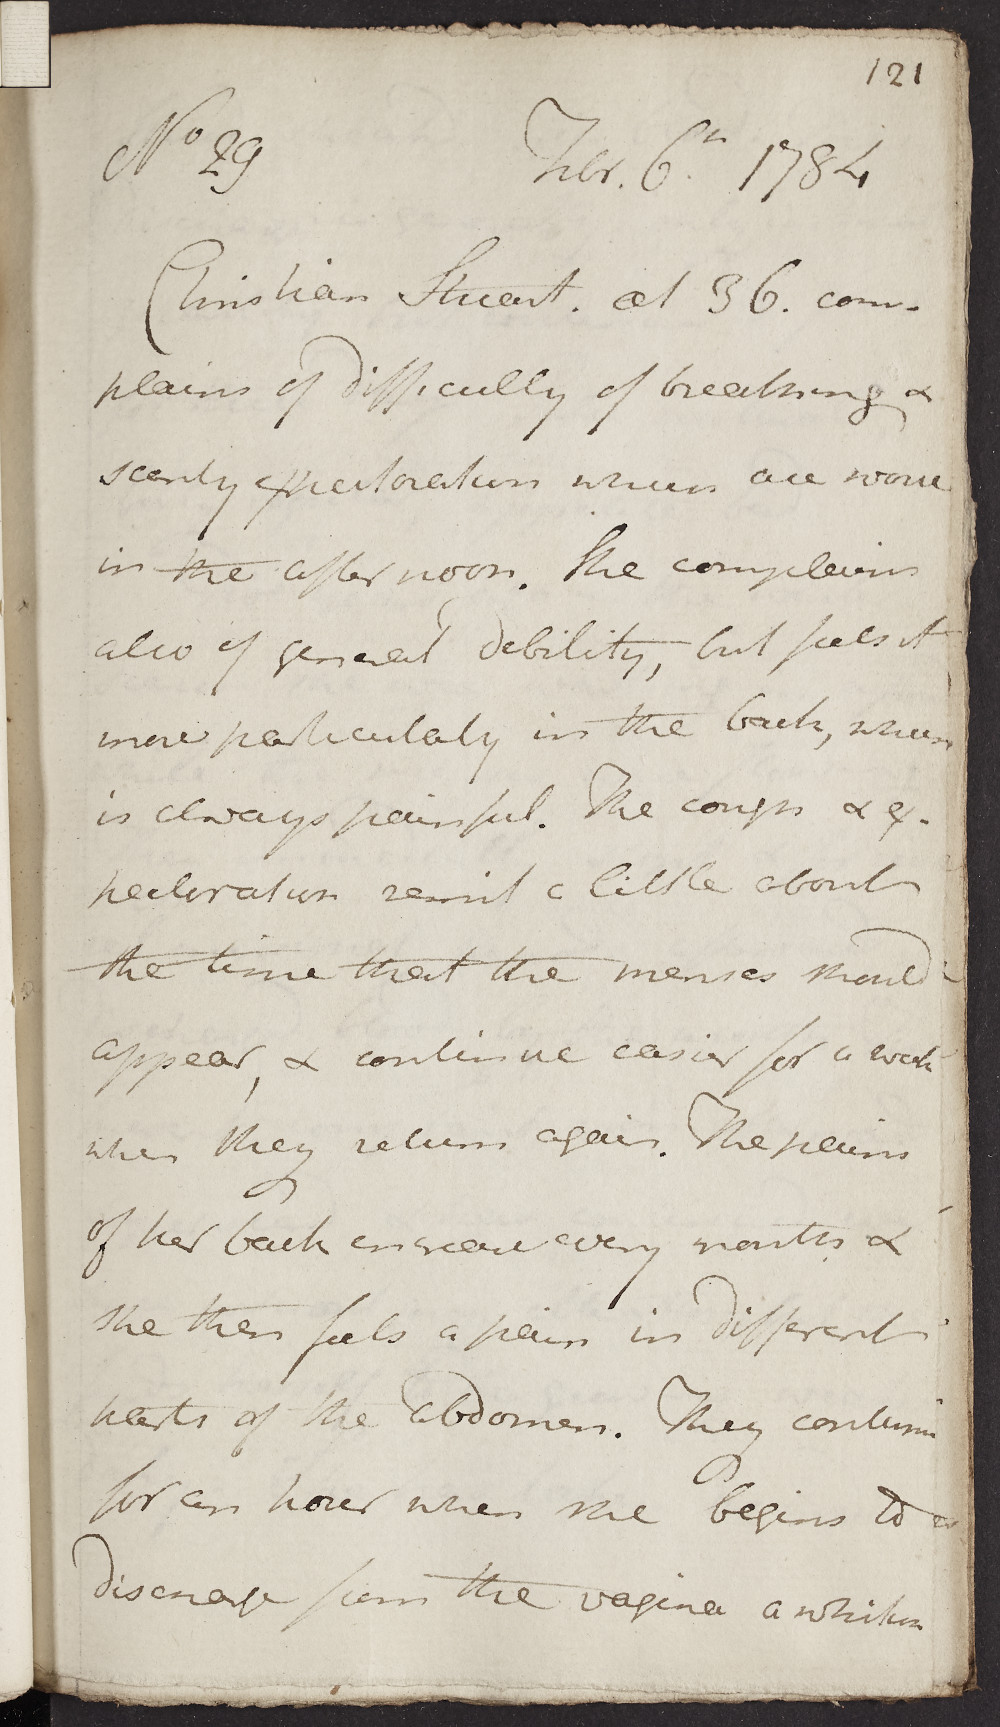 121
No 29 Febr. 6th 1784
Christian Stuart. æt 36. com-
plains of difficulty of breathing &
scanty expectoration which are worse
in the afternoon. She complains
also of general debility, but feels it
more particularly in the back, which
is always painful. The cough & ex-
pectoration remit a little about
the time that the menses should
appear, & continue easier for a week
when they return again. The pains
of her back encrease every month &
she then feels a pain in different
parts of the abdomen. They continue
for an hour when she begins to
discharge from the vagina a whitish